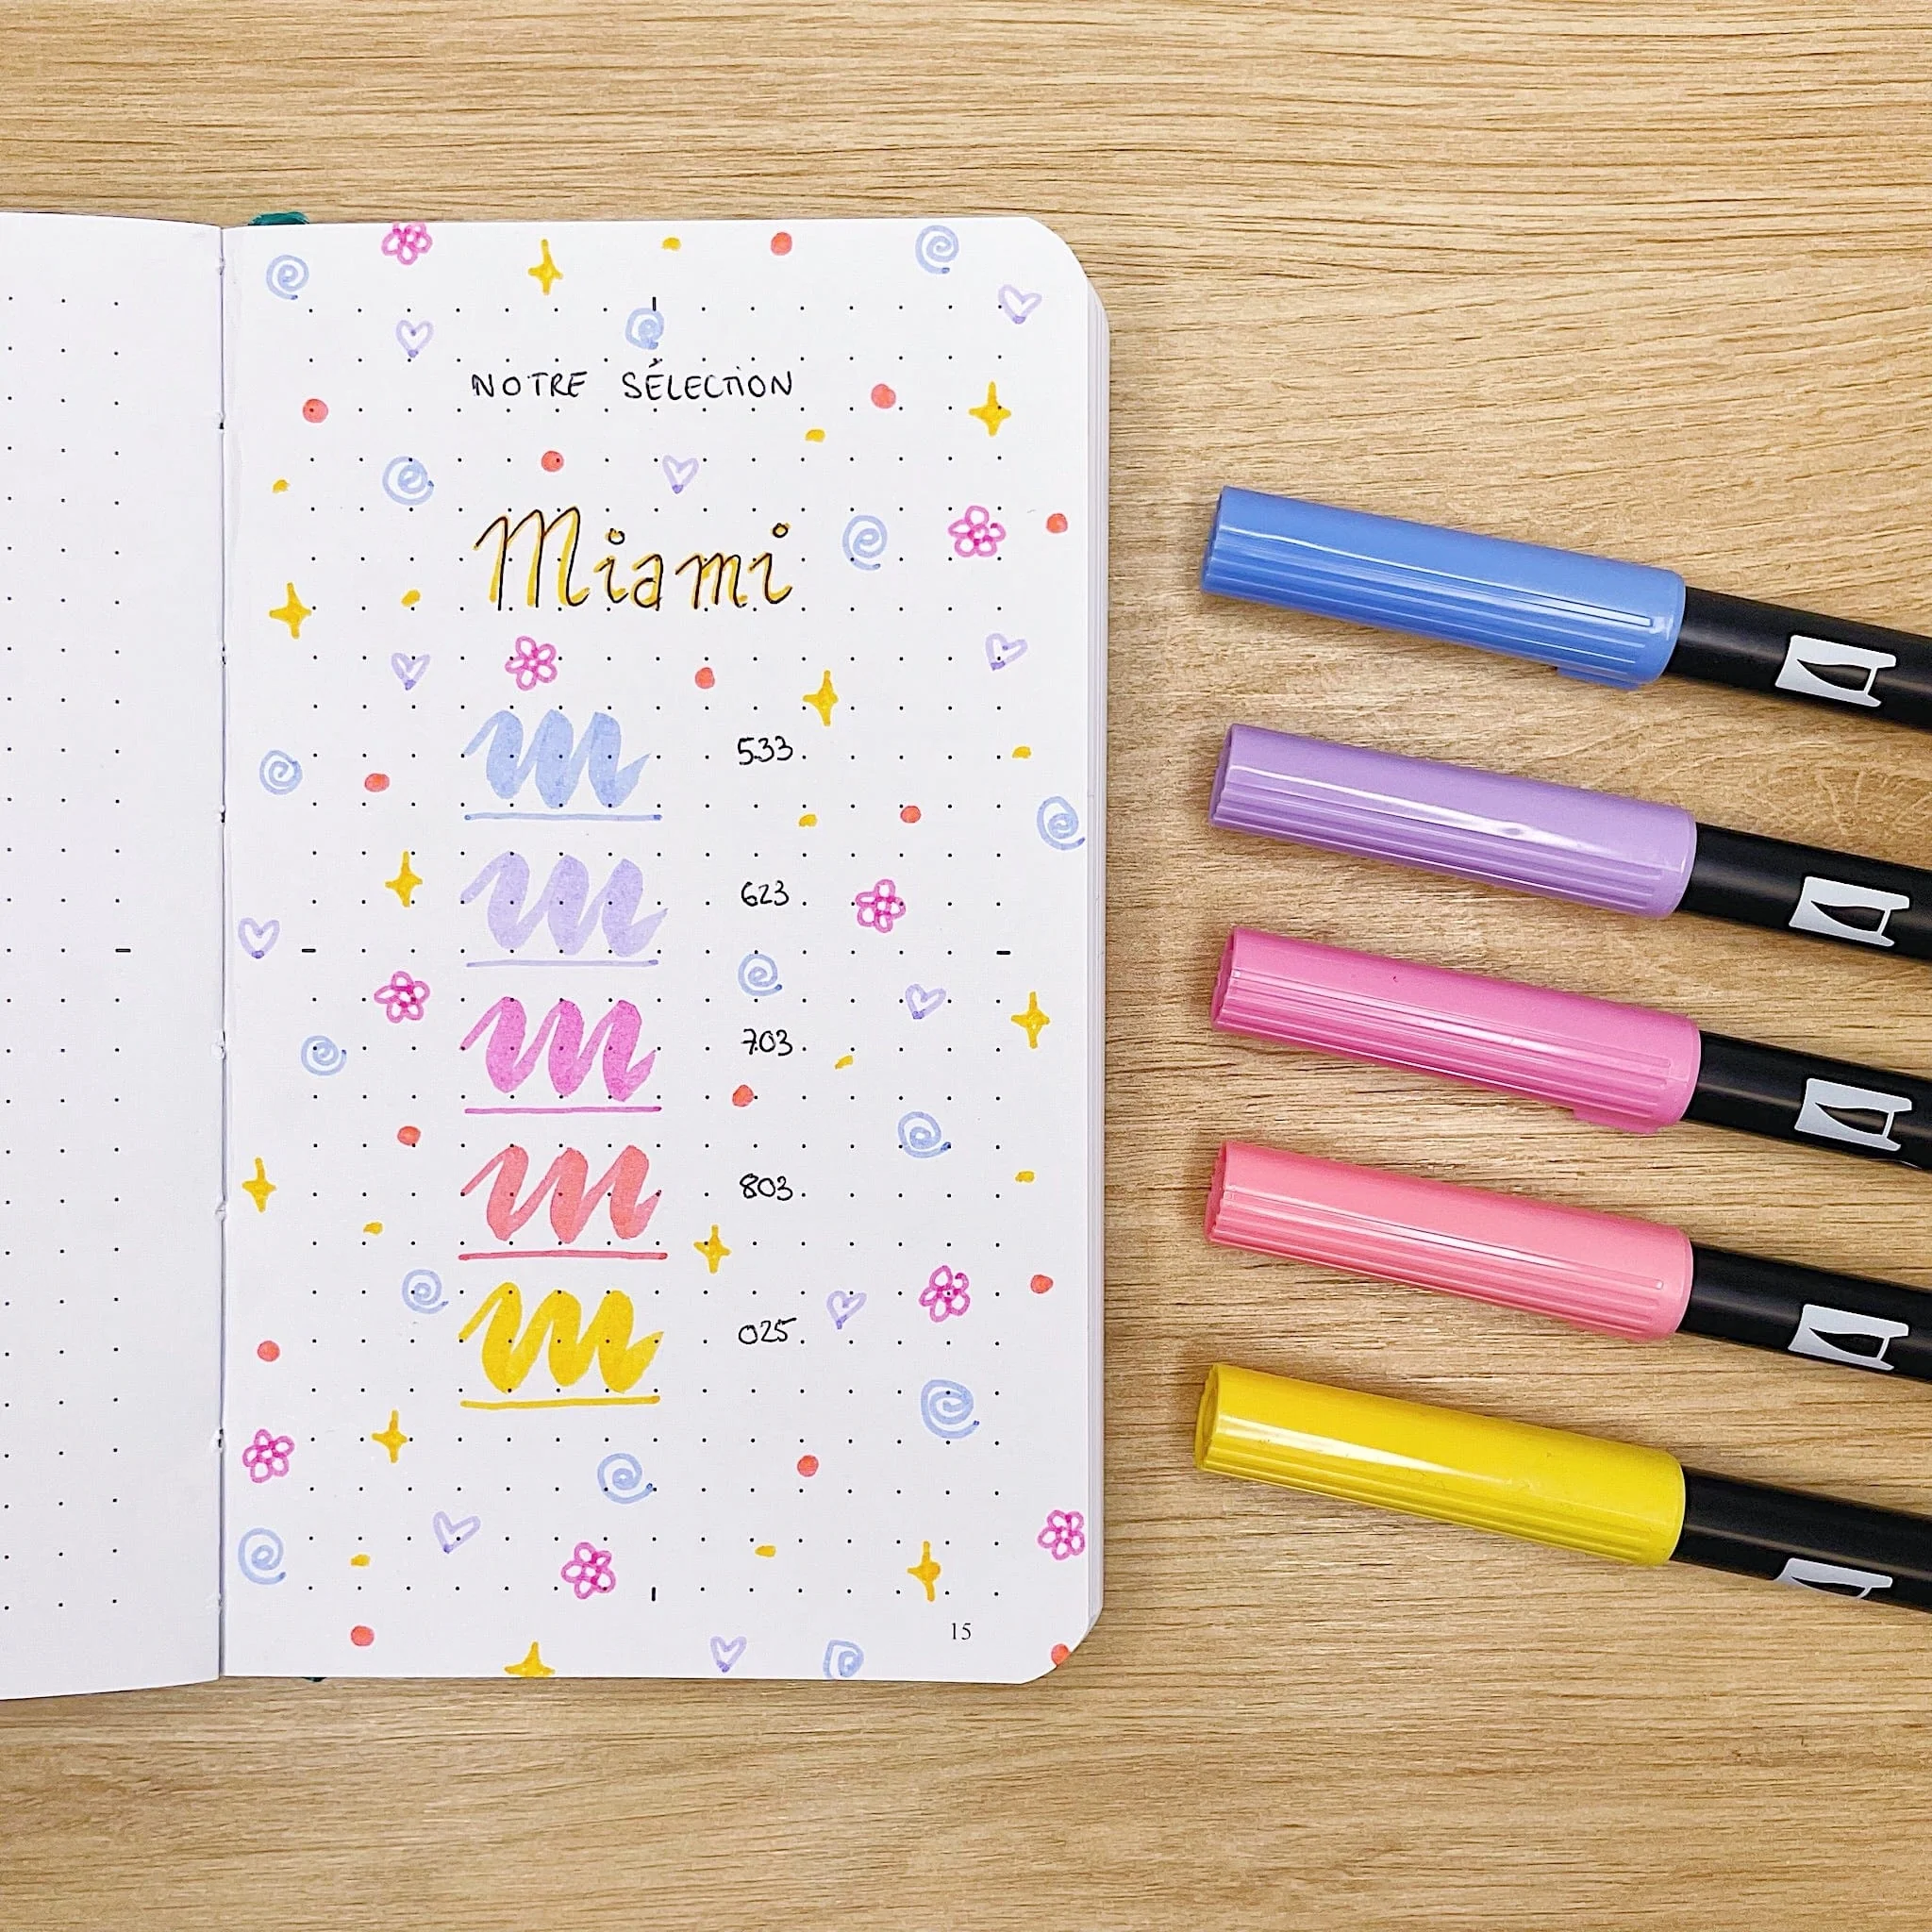 NOTRE SÉLECTION
Miami
533
623
703
803
025
15